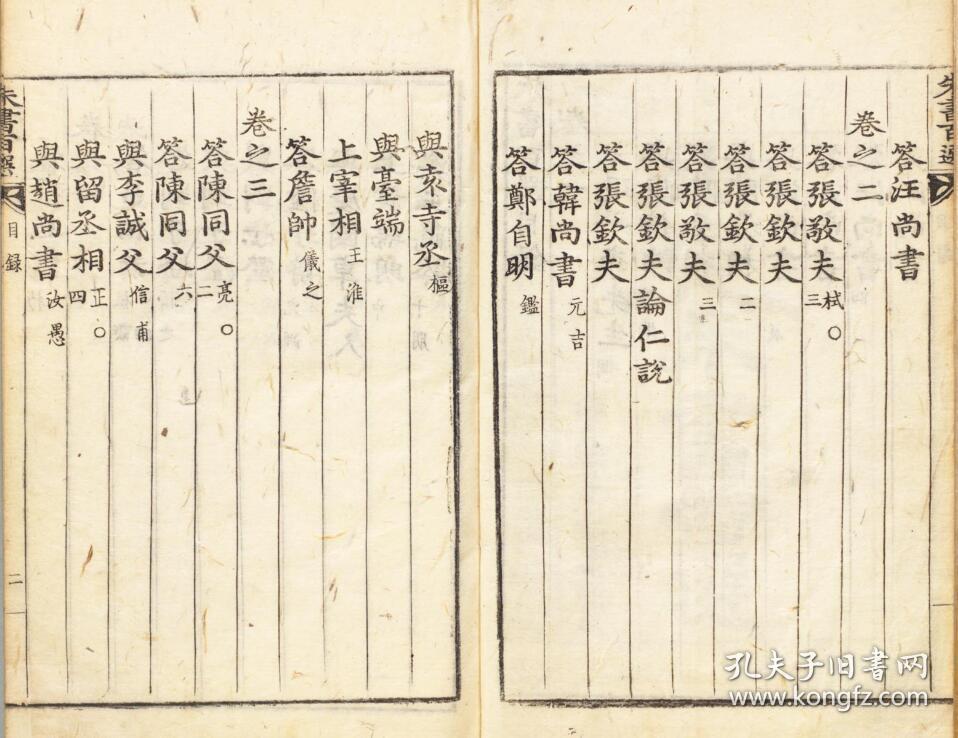 朱書百選
答汪尚書
卷之二
答張敬夫 栻○三
答張欽夫
答張欽夫 二
答張敬夫 三
答張欽夫論仁說
答張欽夫
答韓尚書 元吉
答鄭自明 鑑
與袁寺丞 樞
與臺端
上宰相 王淮
答詹帥 儀之
卷之三
答陳同父 亮○二
答陳同父 六
與李誠父 信甫
與留丞相 正○四
與趙尚書 汝愚
朱書百選 目錄 二
孔夫子旧书网
www.kongfz.com